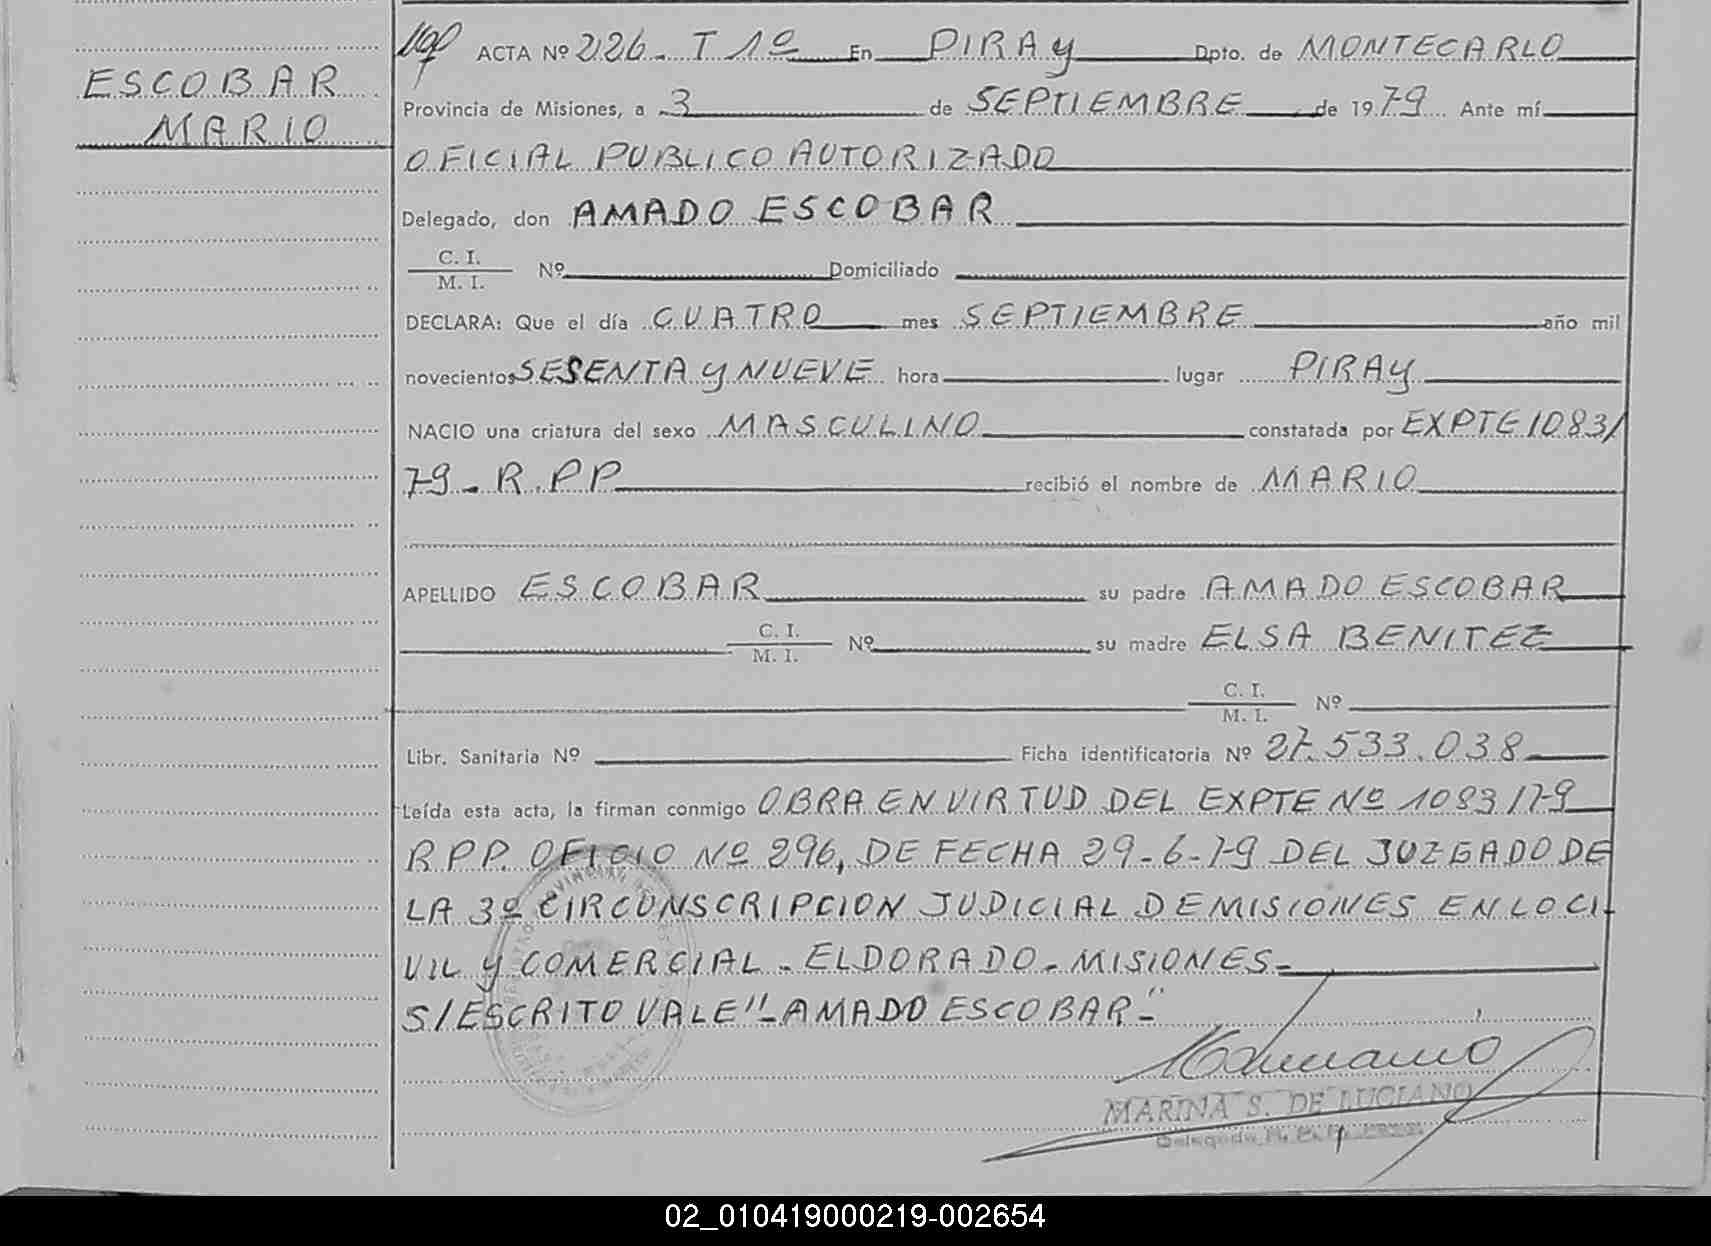 ESCOBAR
MARIO
ACTA Nº 226. T 1º En PIRAY Dpto. de MONTECARLO
Provincia de Misiones, a 3 de SEPTIEMBRE de 1979 Ante mí
OFICIAL PUBLICO AUTORIZADO
Delegado, don AMADO ESCOBAR
C. I.
M. I. Nº Domiciliado
DECLARA: Que el día CUATRO mes SEPTIEMBRE año mil
novecientos SESENTA y NUEVE hora lugar PIRAY
NACIO una criatura del sexo MASCULINO constatada por EXPTE 1083/
79 - R.PP recibió el nombre de MARIO
APELLIDO ESCOBAR su padre AMADO ESCOBAR
C. I.
M. I. Nº su madre ELSA BENITEZ
C. I.
M. I. Nº
Libr. Sanitaria Nº Ficha identificatoria Nº 27.533.038
Leída esta acta, la firman conmigo OBRA EN VIRTUD DEL EXPTE Nº 1083/79
RPP. OFICIO Nº 296, DE FECHA 29-6-79 DEL JUZGADO DE
LA 3º CIRCUNSCRIPCION JUDICIAL DE MISIONES EN LO CI
VIL Y COMERCIAL - ELDORADO - MISIONES -
S/ESCRITO VALE "- AMADO ESCOBAR -"
MARINA S. DE LUCIANO
02_010419000219-002654